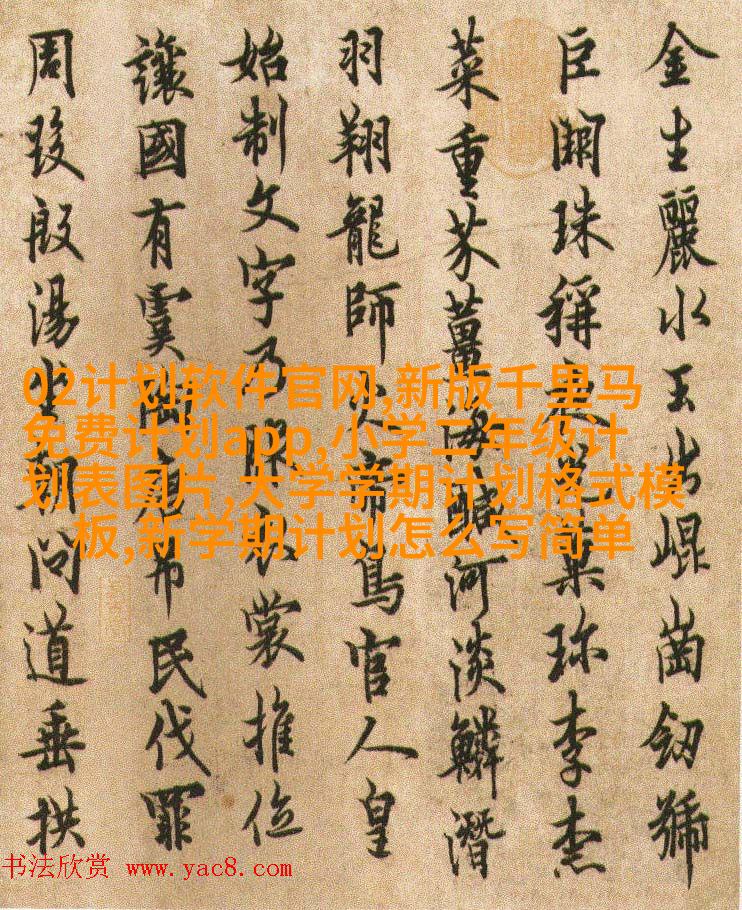 金生麗水玉出崐崗劒號
巨闕珠稱夜光菓珎李柰
菜重芥薑海醎河淡鱗潛
羽翔龍師火帝鳥官人皇
始制文字乃服衣裳推位
讓國有虞陶唐弔民伐罪
周發殷湯坐朝問道垂拱
02计划软件官网,新版千里马
免费计划app,小学二年级计
划表图片,大学学期计划格式模
板,新学期计划怎么写简单
书法欣赏 www.yac8.com